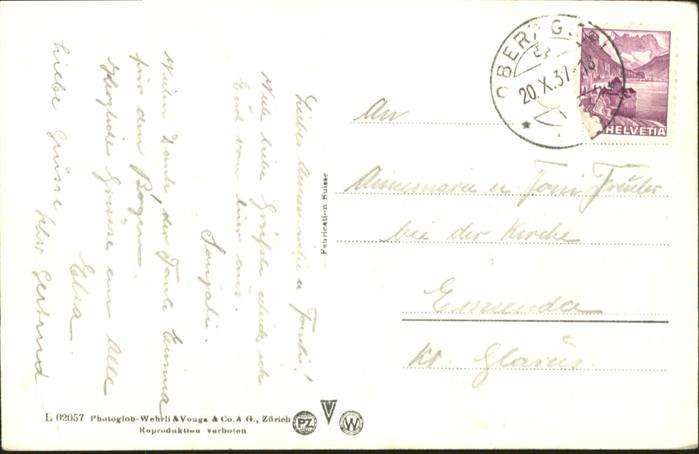 Liebes Annemarie u Joni!
Viele liebe Grüsse schick ich
Euch von hier aus.
Vielen Dank, der Tante Emma
für den Bogen.
Herzliche Grüsse an Alle
Elsa.
Liebe Grüsse Gertrud
An
Annemarie u Joni
bei der Kirche
Ennenda
Kt. Glarus
OBER
20.X.37
HELVETIA
Fabrication Suisse
L 02057 Photoglob-Wehrli & Vouga & Co. A.G., Zürich
Reproduktion verboten
PZ
V
W